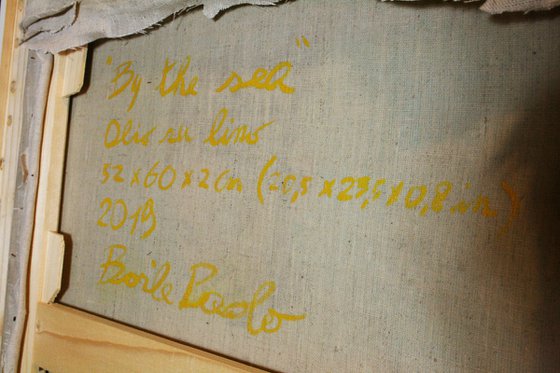 "By the sea"
Olio su lino
52 x 60 x 2 cm (20,5 x 23,5 x 0,8 in)
2019
Borile Paolo